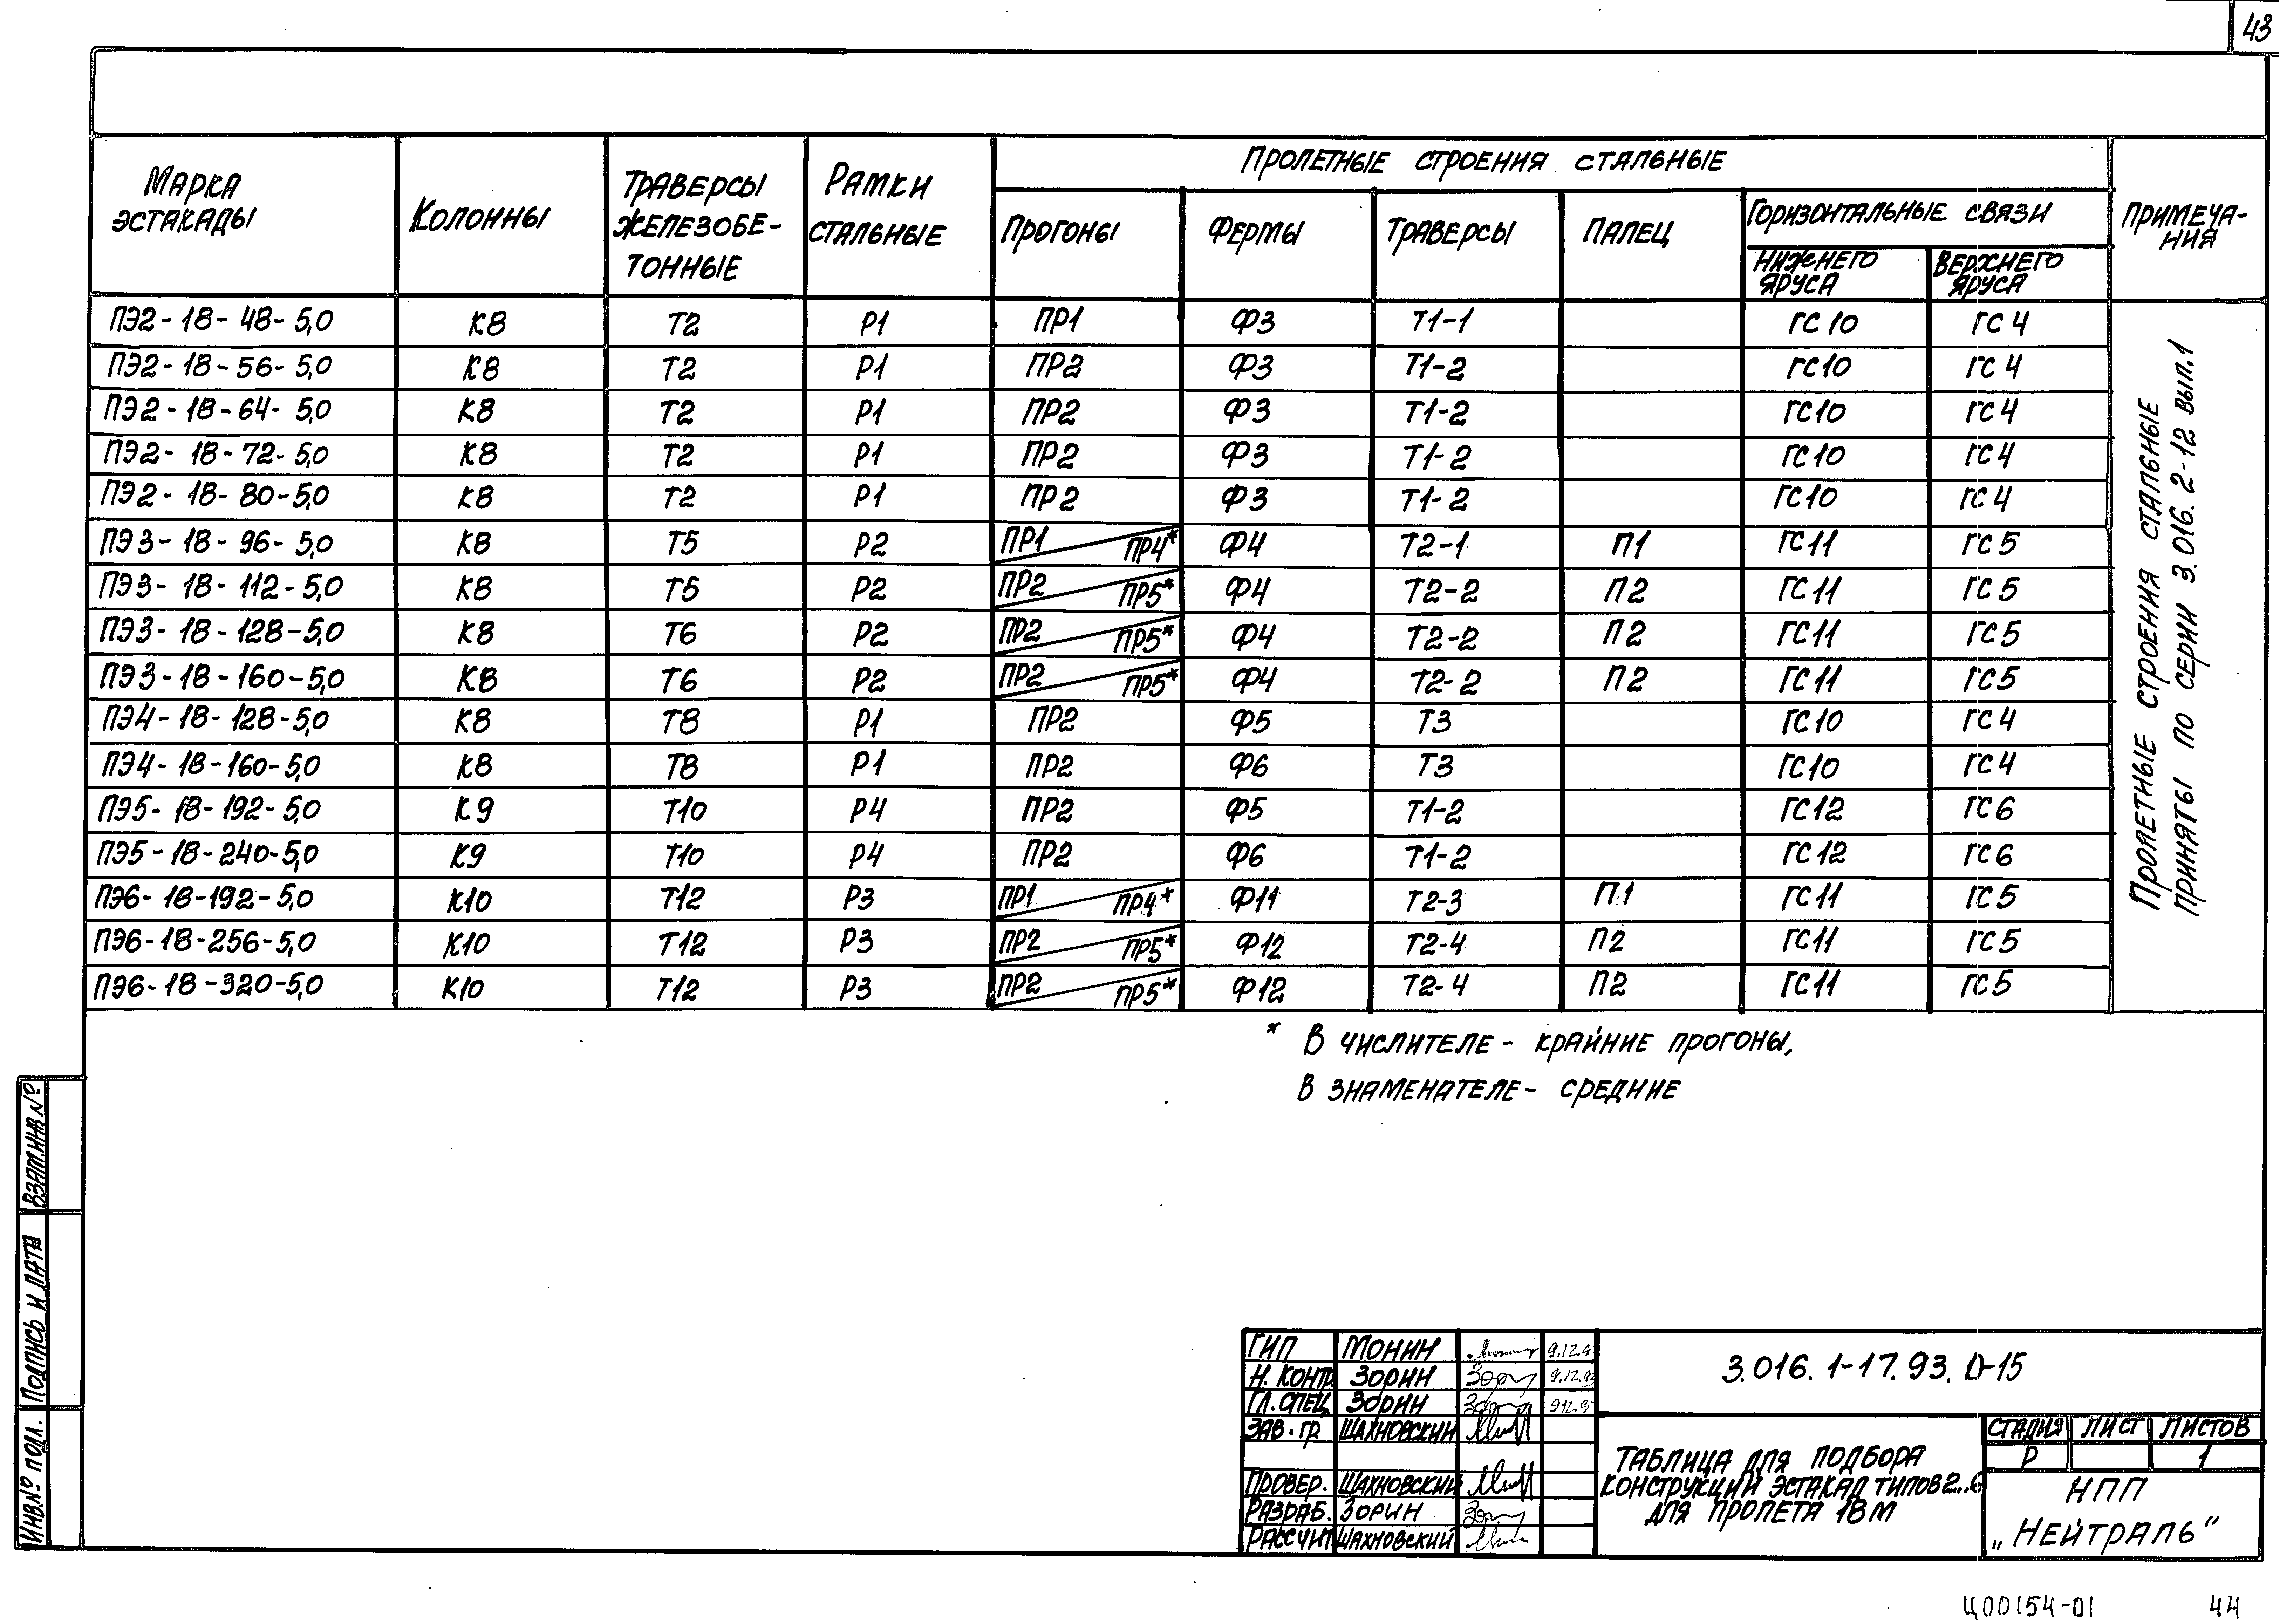 43
Марка эстакады | Колонны | Траверсы железобе-тонные | Рамки стальные | Пролетные строения стальные | Примеча-ния
Прогоны | Фермы | Траверсы | Палец | Горизонтальные связи
нижнего яруса | верхнего яруса
ПЭ2-18-48-5,0 | К8 | Т2 | Р1 | ПР1 | Ф3 | Т1-1 | | ГС10 | ГС4
ПЭ2-18-56-5,0 | К8 | Т2 | Р1 | ПР2 | Ф3 | Т1-2 | | ГС10 | ГС4
ПЭ2-18-64-5,0 | К8 | Т2 | Р1 | ПР2 | Ф3 | Т1-2 | | ГС10 | ГС4
ПЭ2-18-72-5,0 | К8 | Т2 | Р1 | ПР2 | Ф3 | Т1-2 | | ГС10 | ГС4
ПЭ2-18-80-5,0 | К8 | Т2 | Р1 | ПР2 | Ф3 | Т1-2 | | ГС10 | ГС4
ПЭ3-18-96-5,0 | К8 | Т5 | Р2 | ПР1 / ПР4* | Ф4 | Т2-1 | П1 | ГС11 | ГС5
ПЭ3-18-112-5,0 | К8 | Т5 | Р2 | ПР2 / ПР5* | Ф4 | Т2-2 | П2 | ГС11 | ГС5
ПЭ3-18-128-5,0 | К8 | Т6 | Р2 | ПР2 / ПР5* | Ф4 | Т2-2 | П2 | ГС11 | ГС5
ПЭ3-18-160-5,0 | К8 | Т6 | Р2 | ПР2 / ПР5* | Ф4 | Т2-2 | П2 | ГС11 | ГС5
ПЭ4-18-128-5,0 | К8 | Т8 | Р1 | ПР2 | Ф5 | Т3 | | ГС10 | ГС4
ПЭ4-18-160-5,0 | К8 | Т8 | Р1 | ПР2 | Ф6 | Т3 | | ГС10 | ГС4
ПЭ5-18-192-5,0 | К9 | Т10 | Р4 | ПР2 | Ф5 | Т1-2 | | ГС12 | ГС6
ПЭ5-18-240-5,0 | К9 | Т10 | Р4 | ПР2 | Ф6 | Т1-2 | | ГС12 | ГС6
ПЭ6-18-192-5,0 | К10 | Т12 | Р3 | ПР1 / ПР4* | Ф11 | Т2-3 | П1 | ГС11 | ГС5
ПЭ6-18-256-5,0 | К10 | Т12 | Р3 | ПР2 / ПР5* | Ф12 | Т2-4 | П2 | ГС11 | ГС5
ПЭ6-18-320-5,0 | К10 | Т12 | Р3 | ПР2 / ПР5* | Ф12 | Т2-4 | П2 | ГС11 | ГС5
Пролетные строения стальные
приняты по серии 3.016.2-12 вып.1
* В числителе - крайние прогоны,
в знаменателе - средние
Взам.инв.№
Подпись и дата
Инв.№ подл.
ГИП Монин 9.12.9
Н. контр. Зорин 9.12.93
Гл. спец. Зорин 9.12.9
Зав. гр. Шахновский
Провер. Шахновский
Разраб. Зорин
Рассчит. Шахновский
3.016.1-17.93.0-15
Таблица для подбора
конструкций эстакад типов 2...6
для пролета 18м
Стадия Лист Листов
Р 1
НПП
„Нейтраль"
Ц00154-01 44